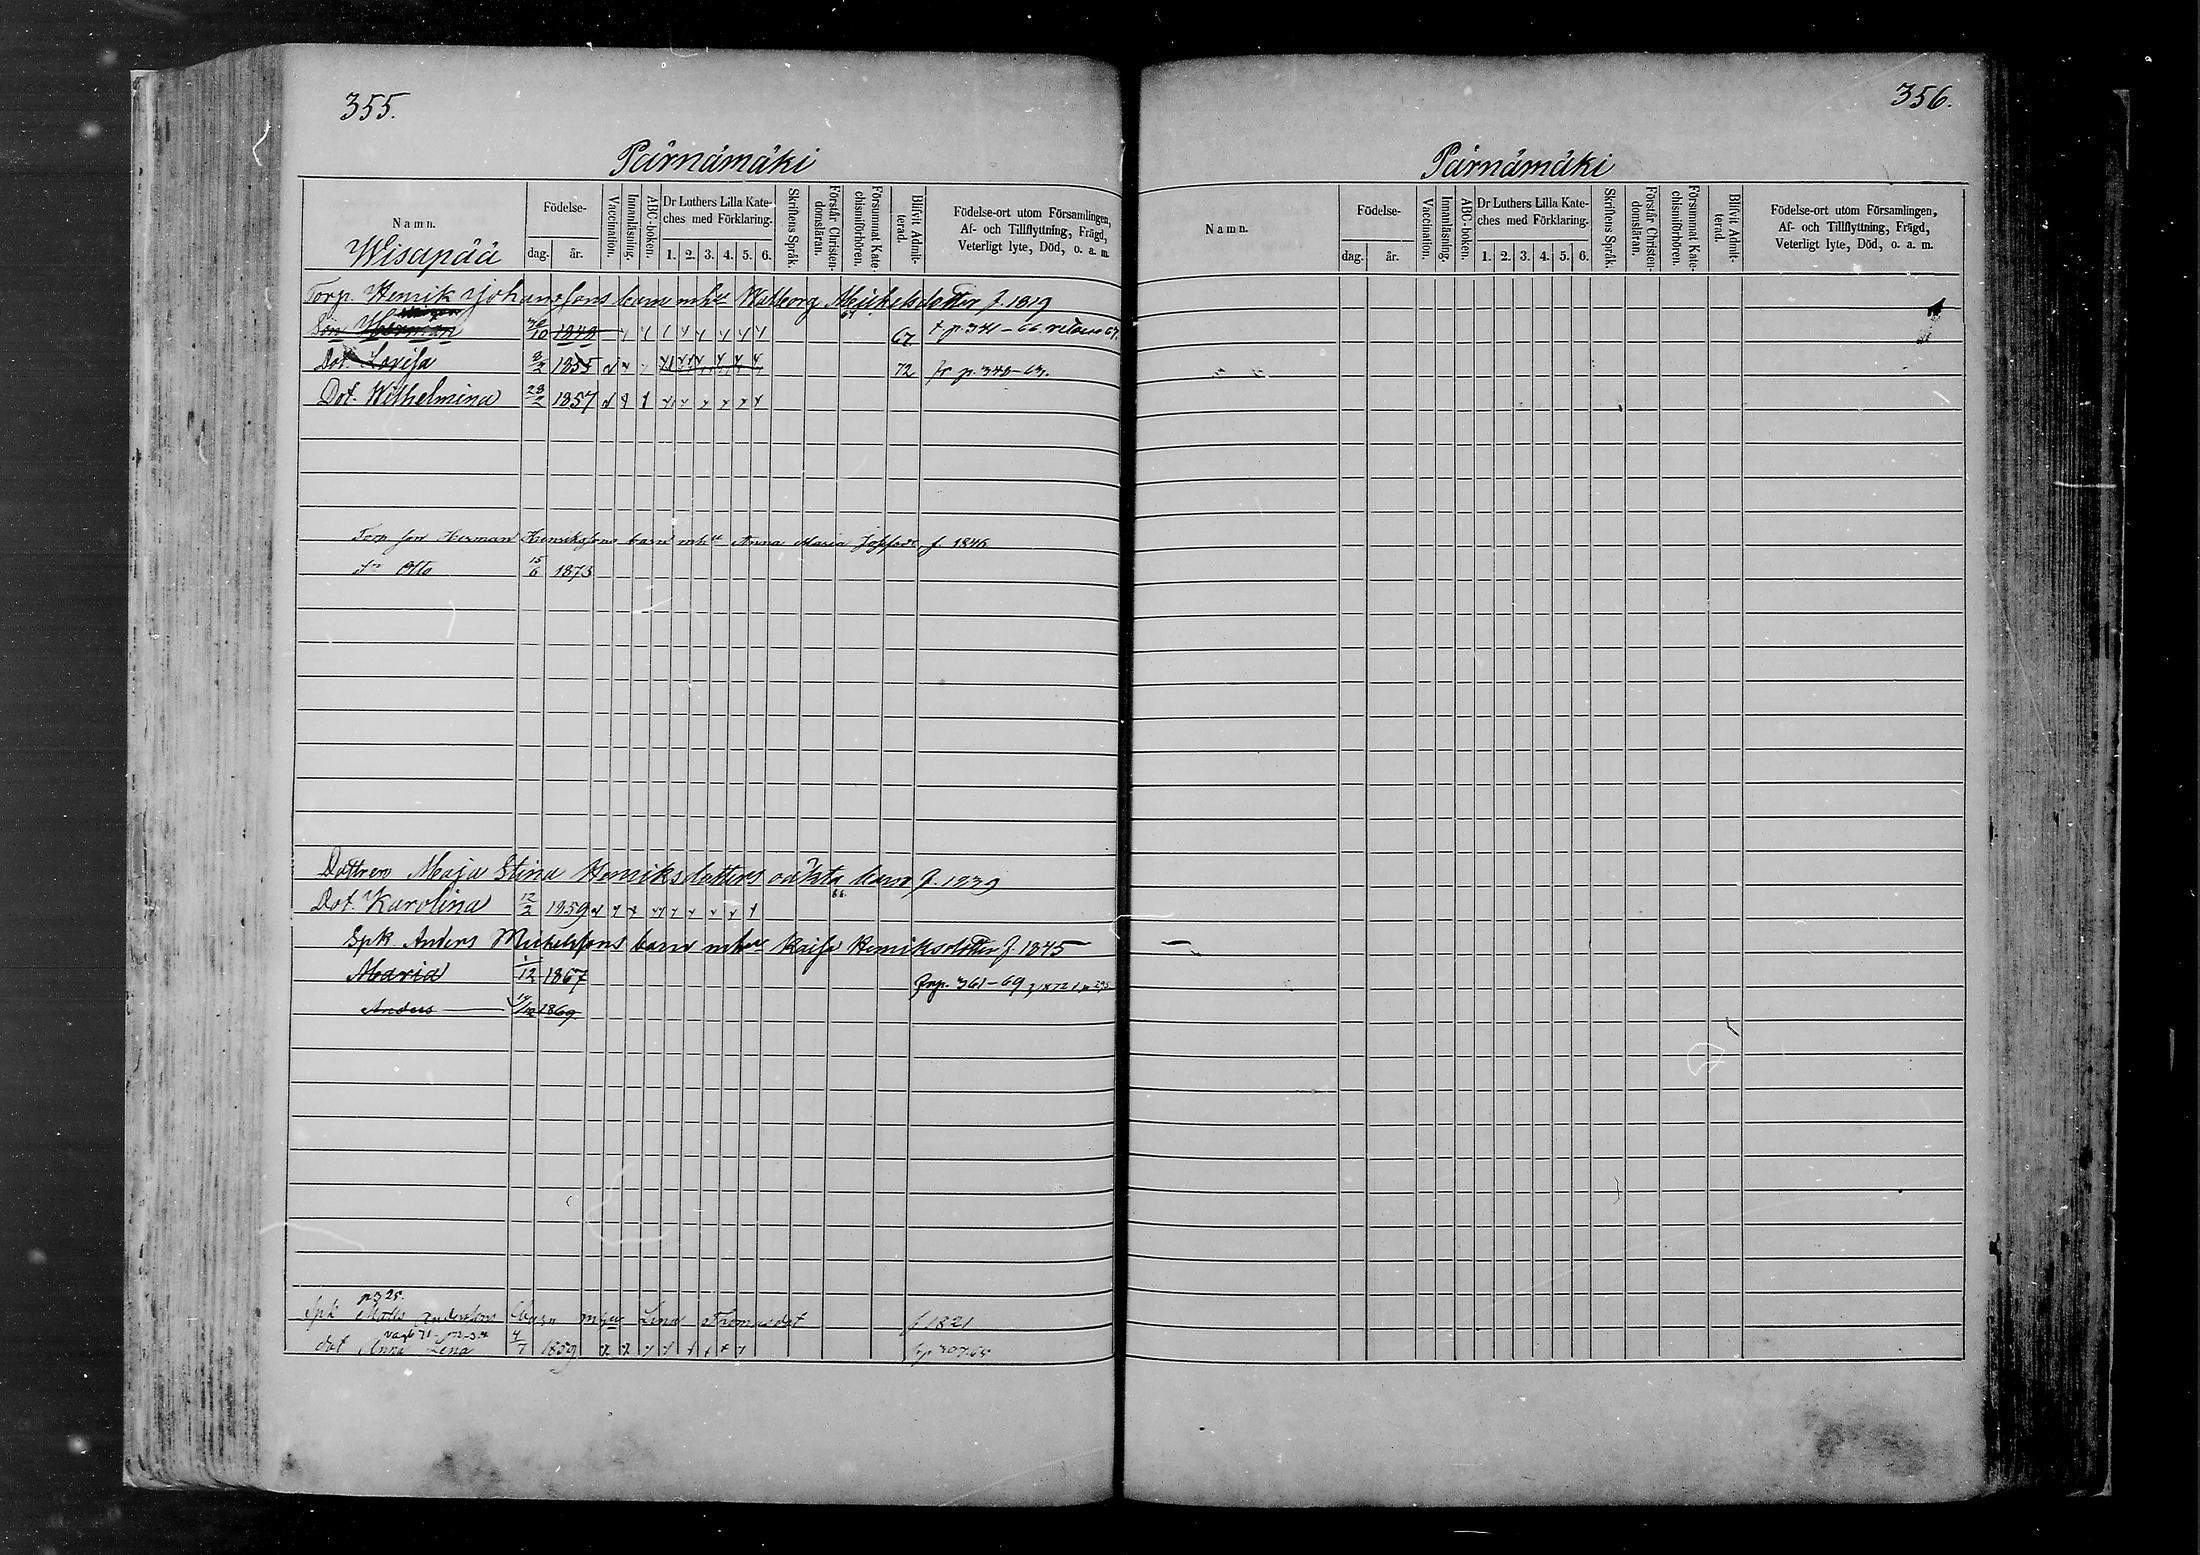 355.
Pärnämäki
Namn.
Wisapää
Födelse-
dag. år.
Vaccination.
Innanläsning.
ABC-boken.
Dr Luthers Lilla Kate-
ches med Förklaring.
1. 2. 3. 4. 5. 6.
Skriftens Språk.
Förstår Christen-
domsläran.
Försummat Kate-
chismiförhören.
Blifvit Admit-
terad.
Födelse-ort utom Församlingen,
Af- och Tillflyttning, Frägd,
Veterligt lyte, Död, o. a. m.
Torp. Henrik Johanssons barn mhu Walborg Michelsdotter f. 1819
Son Herman 30/10 1848 67 p. 341-66
Dot. Lovisa 3/2 1855 72 fr p. 343-63.
Dot. Wilhelmina 28/2 1857
Torp son Herman Henrikssons barn mhu Anna Maria f. 1846
Sn Otto 15/6 1873
Dottren Maja Stina Henriksdotters oäkta barn f. 1839
Dot. Karolina 12/2 1859
Spk. Anders Michelssons barn mhu Kaisa Henriksdotter f. 1845
Maria 1/12 1867 frp. 361-69
Anders 1869
p325.
Spk Matts Anderssons barn mhu Lena Thomasdot f 1821
dot Anna Lena 4/7 1859
356.
Pärnämäki
Namn.
Födelse-
dag. år.
Vaccination.
Innanläsning.
ABC-boken.
Dr Luthers Lilla Kate-
ches med Förklaring.
1. 2. 3. 4. 5. 6.
Skriftens Språk.
Förstår Christen-
domsläran.
Försummat Kate-
chismiförhören.
Blifvit Admit-
terad.
Födelse-ort utom Församlingen,
Af- och Tillflyttning, Frägd,
Veterligt lyte, Död, o. a. m.